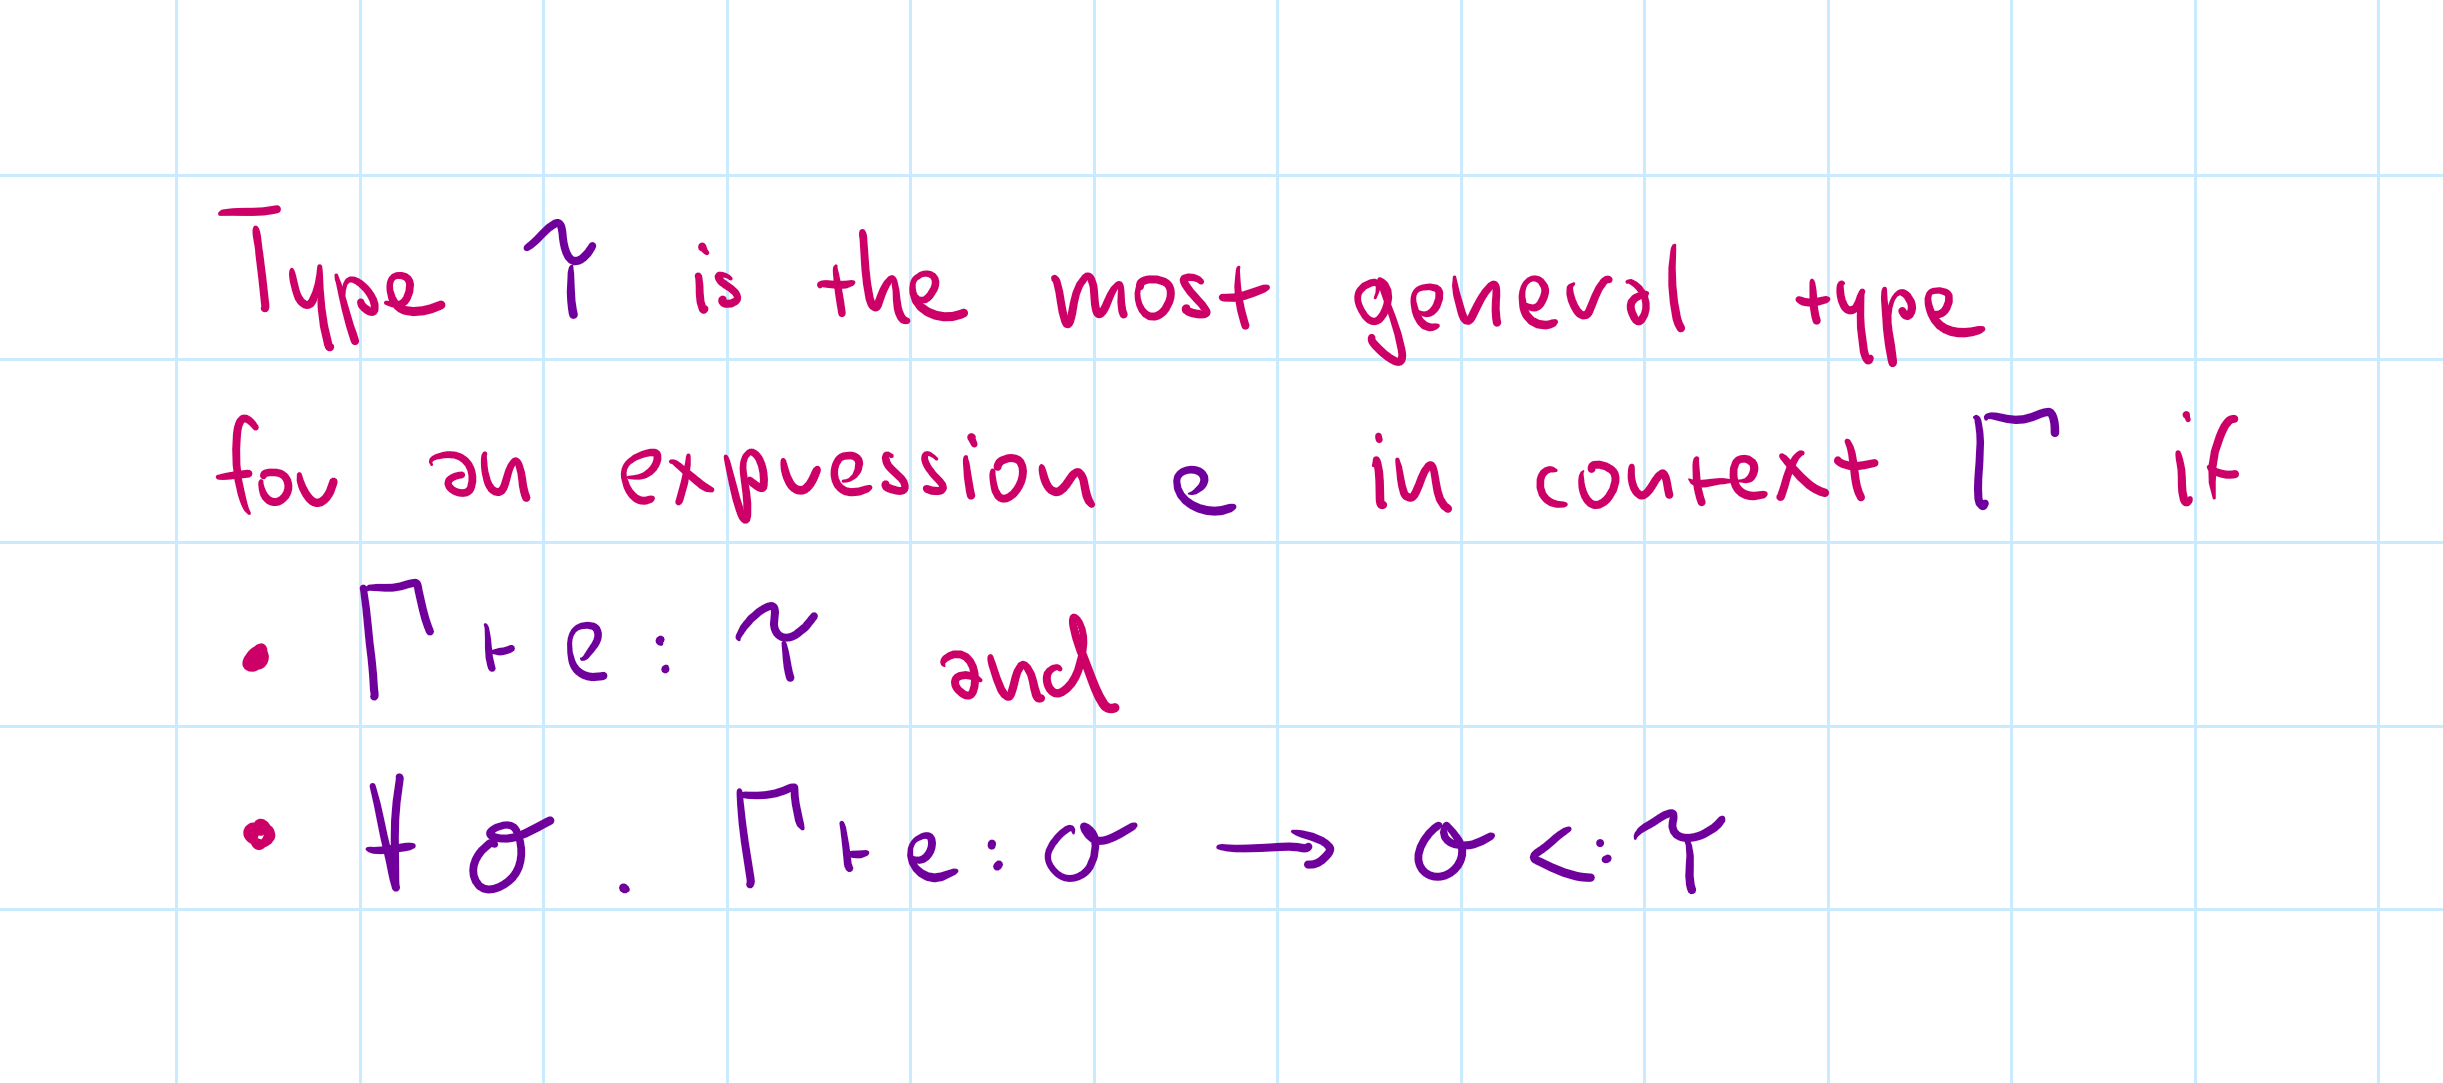 Type τ is the most general type
for an expression e in context Γ if
• Γ ⊢ e : τ and
• ∀ σ . Γ ⊢ e : σ → σ <: τ